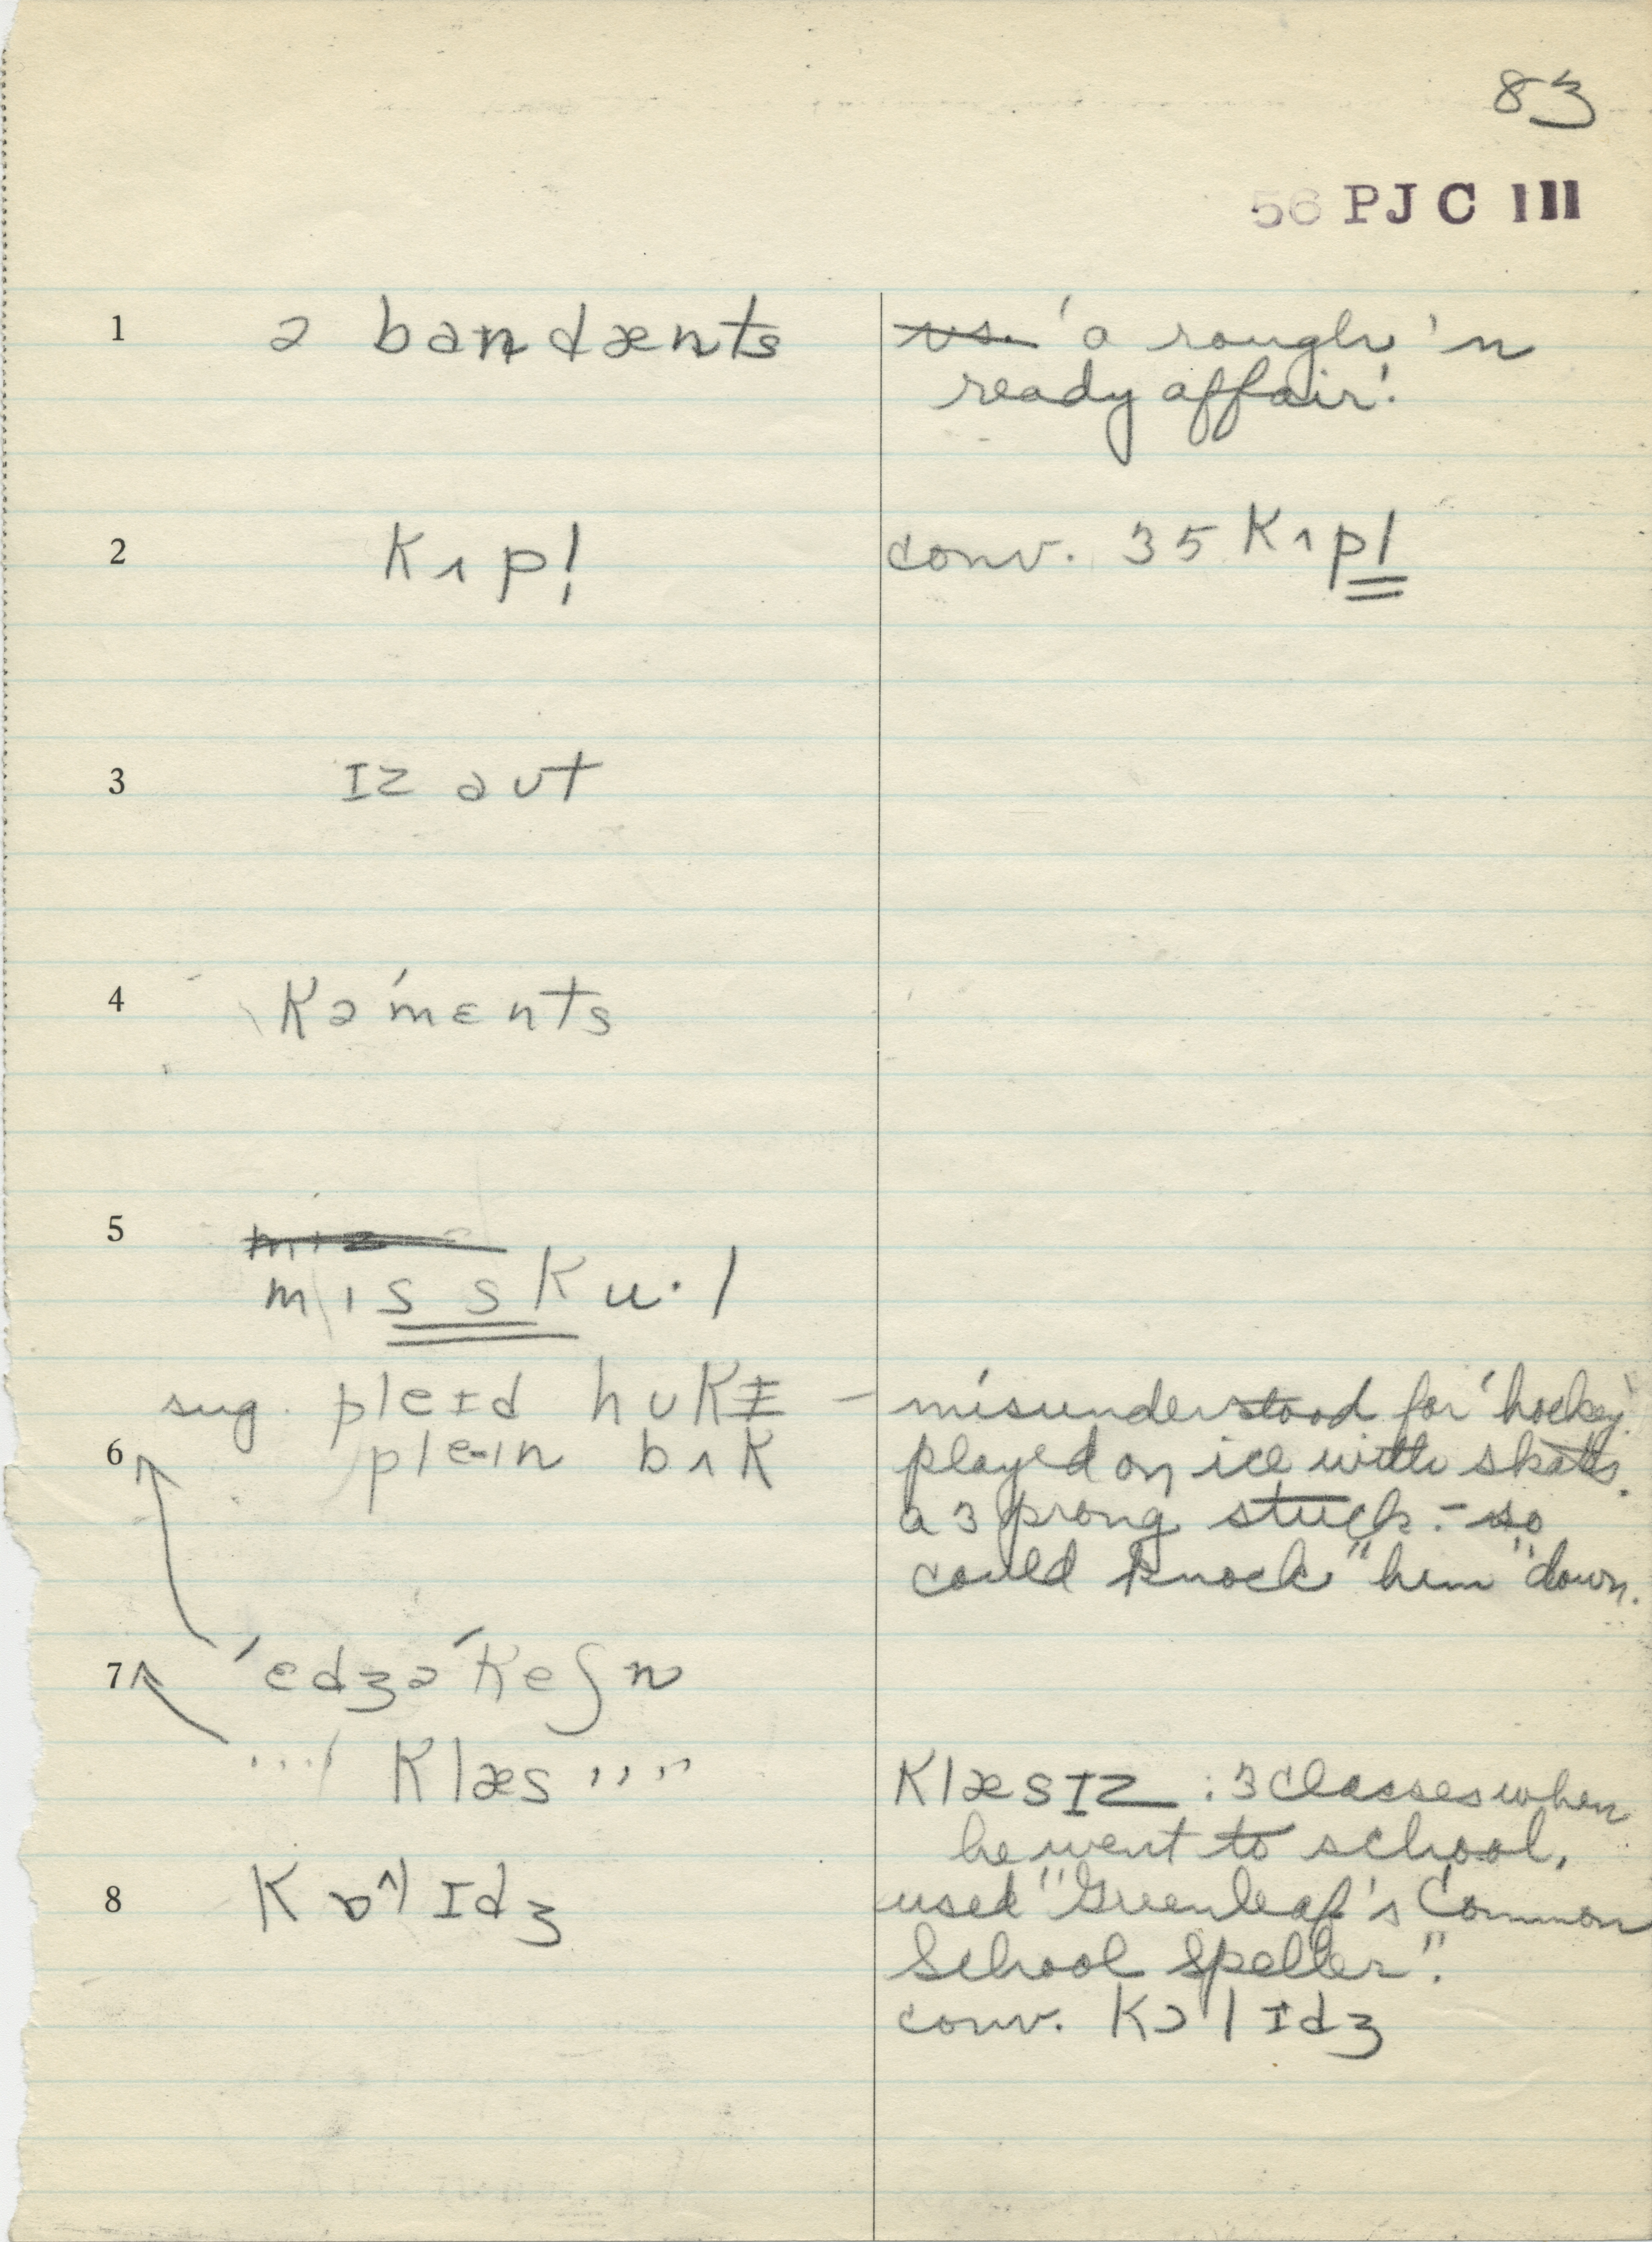 83
56 PJC III
1 ə bandænts
u̶s̶.̶ 'a rough 'n
ready affair'.
2 kʌpl̩
conv. 35 kʌpl
3 ɪz aut
4 kə'mɛnts
5
mɪs sku·l
sug. pleɪd hukɪ – misunderstood for 'hockey'
6 ple-ɪn bʌk
played on ice with skates.
a 3 prong stick. – so
could knock "him" down.
7 'ɛdʒə'keʃn
'''' klæs ''''
klæsɪz : 3 classes when
he went to school,
8 kɒ^lɪdʒ
used "Greenleaf's Common
School Speller".
conv. kɔlɪdʒ